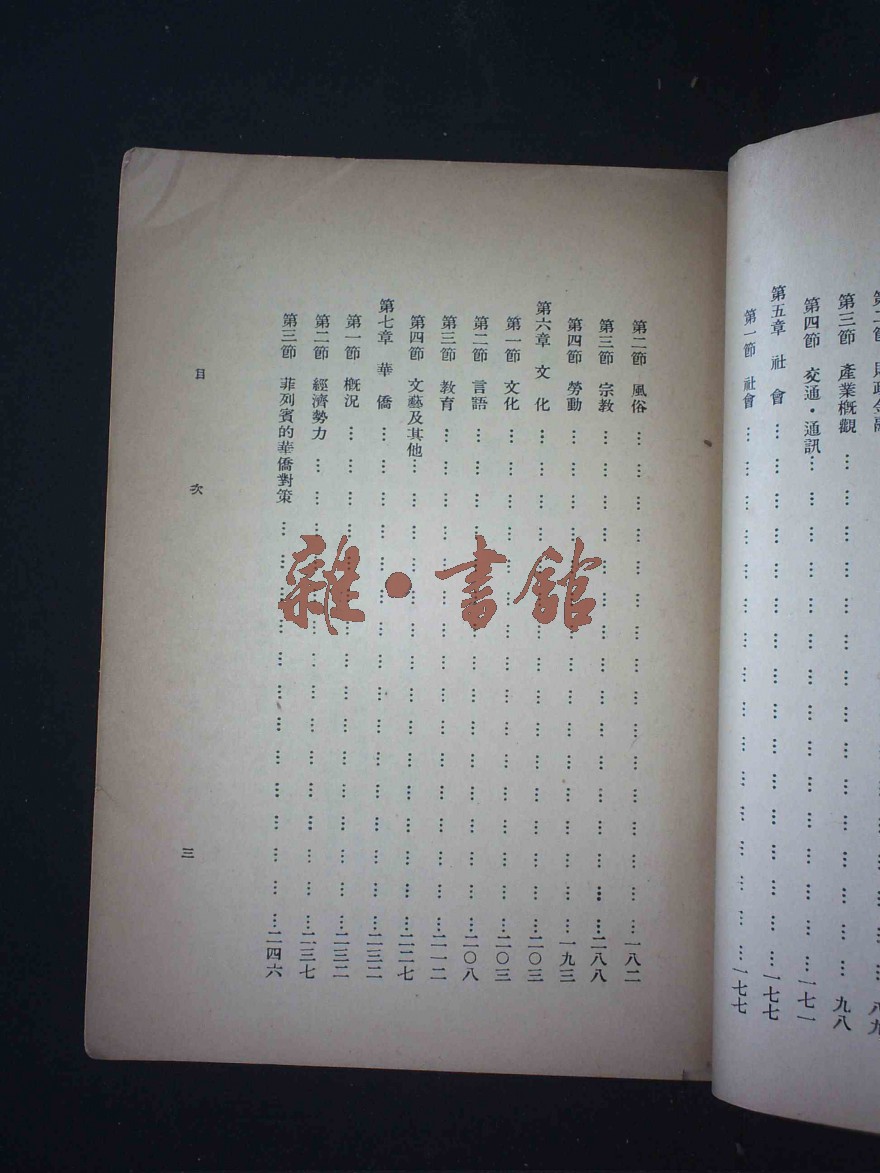 第三節 產業概觀 … … … … … … … … … … … … 九八
第四節 交通・通訊 … … … … … … … … … … … … 一七一
第五章 社 會 … … … … … … … … … … … … … 一七七
第一節 社會 … … … … … … … … … … … … … 一七七
第二節 風俗 … … … … … … … … … … … … … … 一八二
第三節 宗教 … … … … … … … … … … … … … … 二八八
第四節 勞動 … … … … … … … … … … … … … … 一九三
第六章 文 化 … … … … … … … … … … … … … … 二〇三
第一節 文化 … … … … … … … … … … … … … … 二〇三
第二節 言語 … … … … … … … … … … … … … … 二〇八
第三節 教育 … … … … … … … … … … … … … … 二一二
第四節 文藝及其他 … … … … … … … … … … … … 二二七
第七章 華 僑 … … … … … … … … … … … … … … 二三二
第一節 概況 … … … … … … … … … … … … … … 二三二
第二節 經濟勢力 … … … … … … … … … … … … 二三七
第三節 菲列賓的華僑對策 … … … … … … … … … … 二四六
目 次 三
雜・書館